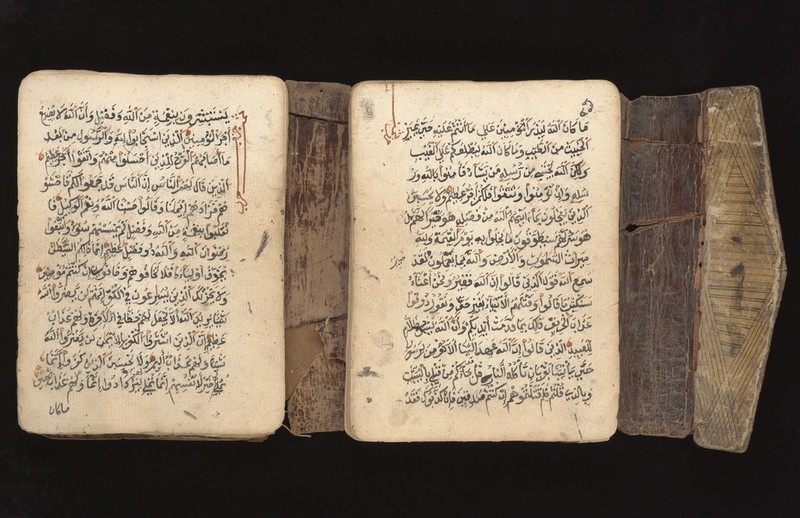 يستبشرون بنعمة من الله وفضل وأن الله لا يضيع
أجر المؤمنين الذين استجابوا لله والرسول من بعد
ما أصابهم القرح للذين أحسنوا منهم واتقوا أجر عظيم
الذين قال لهم الناس إن الناس قد جمعوا لكم فاخشو
هم فزادهم إيمانا وقالوا حسبنا الله ونعم الوكيل فا
نقلبوا بنعمة من الله وفضل لم يمسسهم سوء واتبعوا
رضوان الله والله ذو فضل عظيم إنما ذلكم الشيطن
يخوف أولياءه فلا تخافوهم وخافون إن كنتم مؤمنين
ولا يحزنك الذين يسرعون في الكفر إنهم لن يضروا الله
شيئا يريد الله ألا يجعل لهم حظا في الآخرة ولهم عذاب
عظيم إن الذين اشتروا الكفر بالإيمن لن يضروا الله
شيئا ولهم عذاب أليم ولا يحسبن الذين كفروا أنما
نملي لهم خير لأنفسهم إنما نملي لهم ليزدادوا إثما ولهم عذاب مهين
ماكان
ما كان الله ليذر المؤمنين على ما أنتم عليه حتى يميز
الخبيث من الطيب وما كان الله ليطلعكم على الغيب
ولكن الله يجتبي من رسله من يشاء فامنوا بالله ور
سله وإن تؤمنوا وتتقوا فلكم أجر عظيم ولا يحسبن
الذين يبخلون بما ءاتيهم الله من فضله هو خيرا لهم بل
هو شر لهم سيطوقون ما بخلوا به يوم القيمة ولله
ميراث السموات والأرض والله بما يعملون لقد
خبير
سمع الله قول الذين قالوا إن الله فقير ونحن أغنياء
سنكتب ما قالوا وقتلهم الأنبياء بغير حق ونقول ذوقوا
عذاب الحريق ذلك بما قدمت أيديكم وأن الله ليس بظلام
للعبيد الذين قالوا إن الله عهد إلينا ألا نؤمن لرسول
حتى يأتينا بقربان تأكله النار قل قد جاءكم رسل من قبلي بالبينت
وبالذي قلتم فلم قتلتموهم إن كنتم صدقين فإن كذبوك فقد